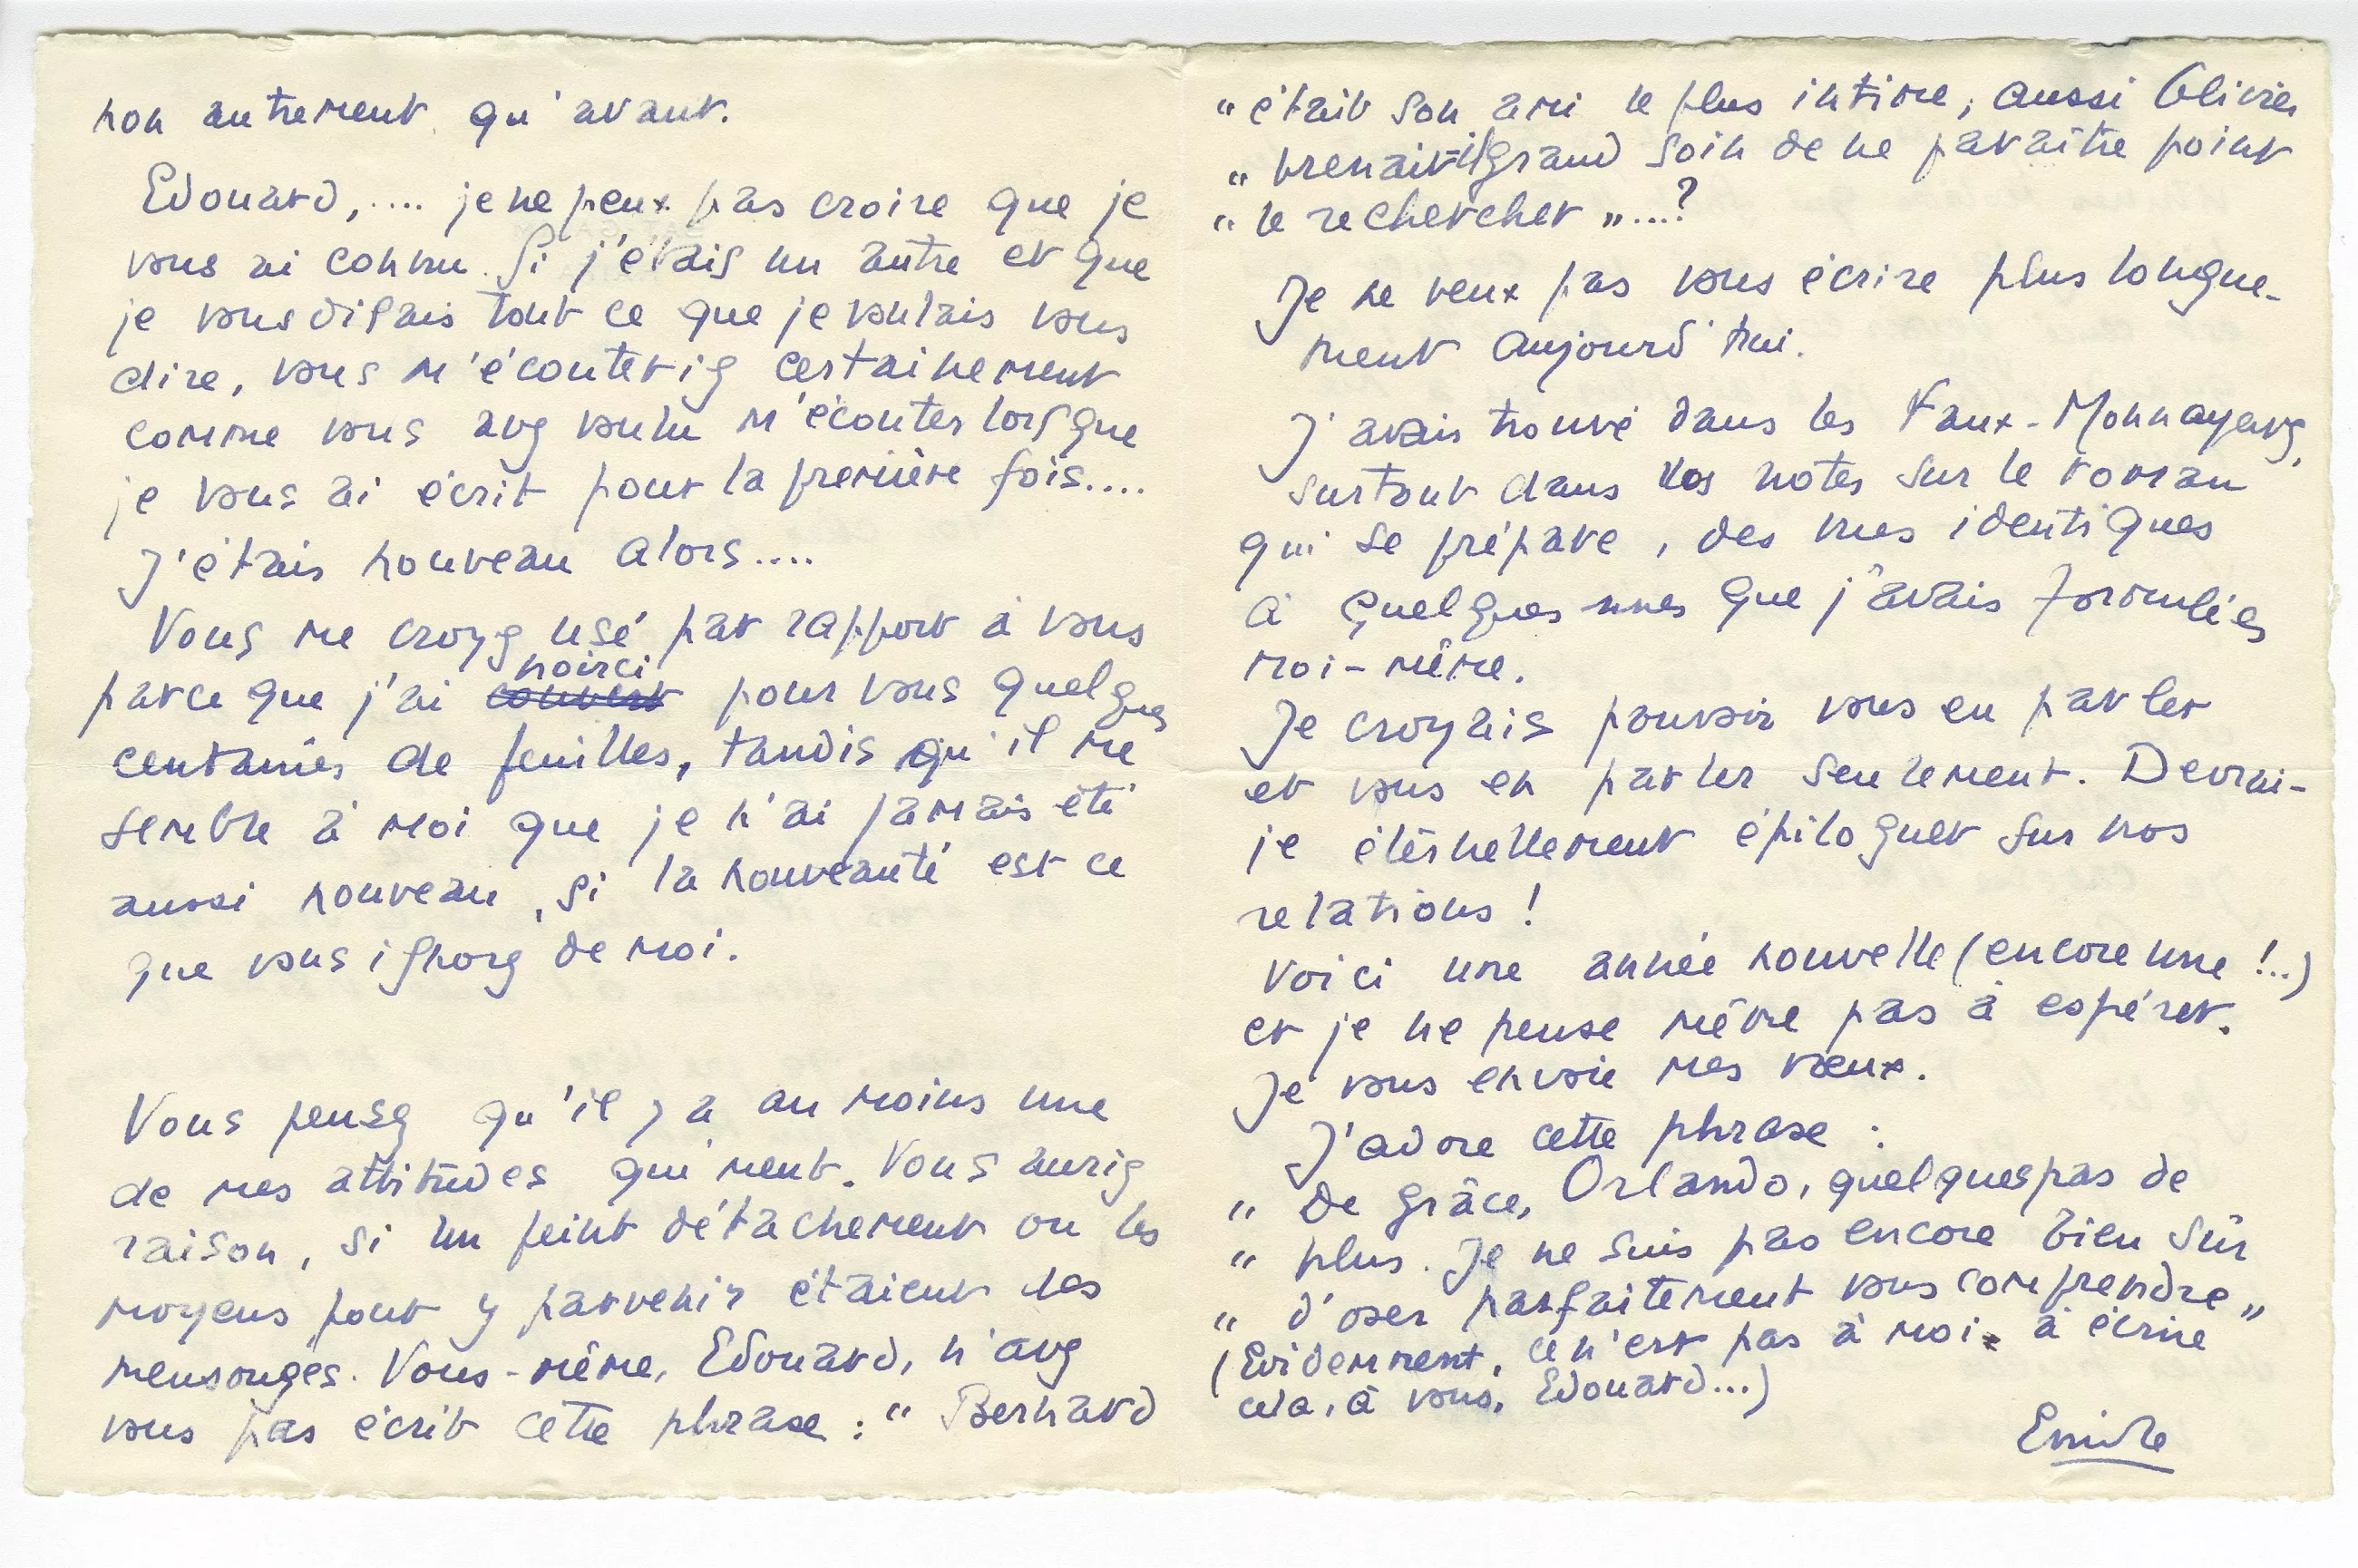 non autrement qu'avant.
Edouard, .... je ne peux pas croire que je
vous ai connu. Si j'étais un autre et que
je vous disais tout ce que je voulais vous
dire, vous m'écouteriez certainement
comme vous avez voulu m'écouter lorsque
je vous ai écrit pour la première fois....
J'étais nouveau alors....
Vous me croyez usé par rapport à vous
noirci
parce que j'ai couvert pour vous quelques
centaines de feuilles, tandis qu'il me
semble à moi que je n'ai jamais été
aussi nouveau, si la nouveauté est ce
que vous ignorez de moi.
Vous pensez qu'il y a au moins une
de mes attitudes qui ment. Vous auriez
raison, si un feint détachement ou les
moyens pour y parvenir étaient des
mensonges. Vous-même, Edouard, n'avez
vous pas écrit cette phrase : " Bernard
" était son ami le plus intime, aussi Olivier
" prenait-il grand soin de ne paraître point
" le rechercher "....?
Je ne veux pas vous écrire plus longue-
ment aujourd'hui.
J'avais trouvé dans les Faux-Monnayeurs,
surtout dans vos notes sur le roman
qui se prépare, des vues identiques
à quelques unes que j'avais formulées
moi-même.
Je croyais pouvoir vous en parler
et vous en parler seulement. Devrai-
je éternellement épiloguer sur nos
relations !
Voici une année nouvelle (encore une !..)
et je ne pense même pas à espérer.
Je vous envoie mes vœux.
J'adore cette phrase :
" De grâce, Orlando, quelques pas de
" plus. Je ne suis pas encore bien sûr
" d'oser parfaitement vous comprendre "
(Evidemment, ce n'est pas à moi à écrire
cela, à vous, Edouard...)
Emile